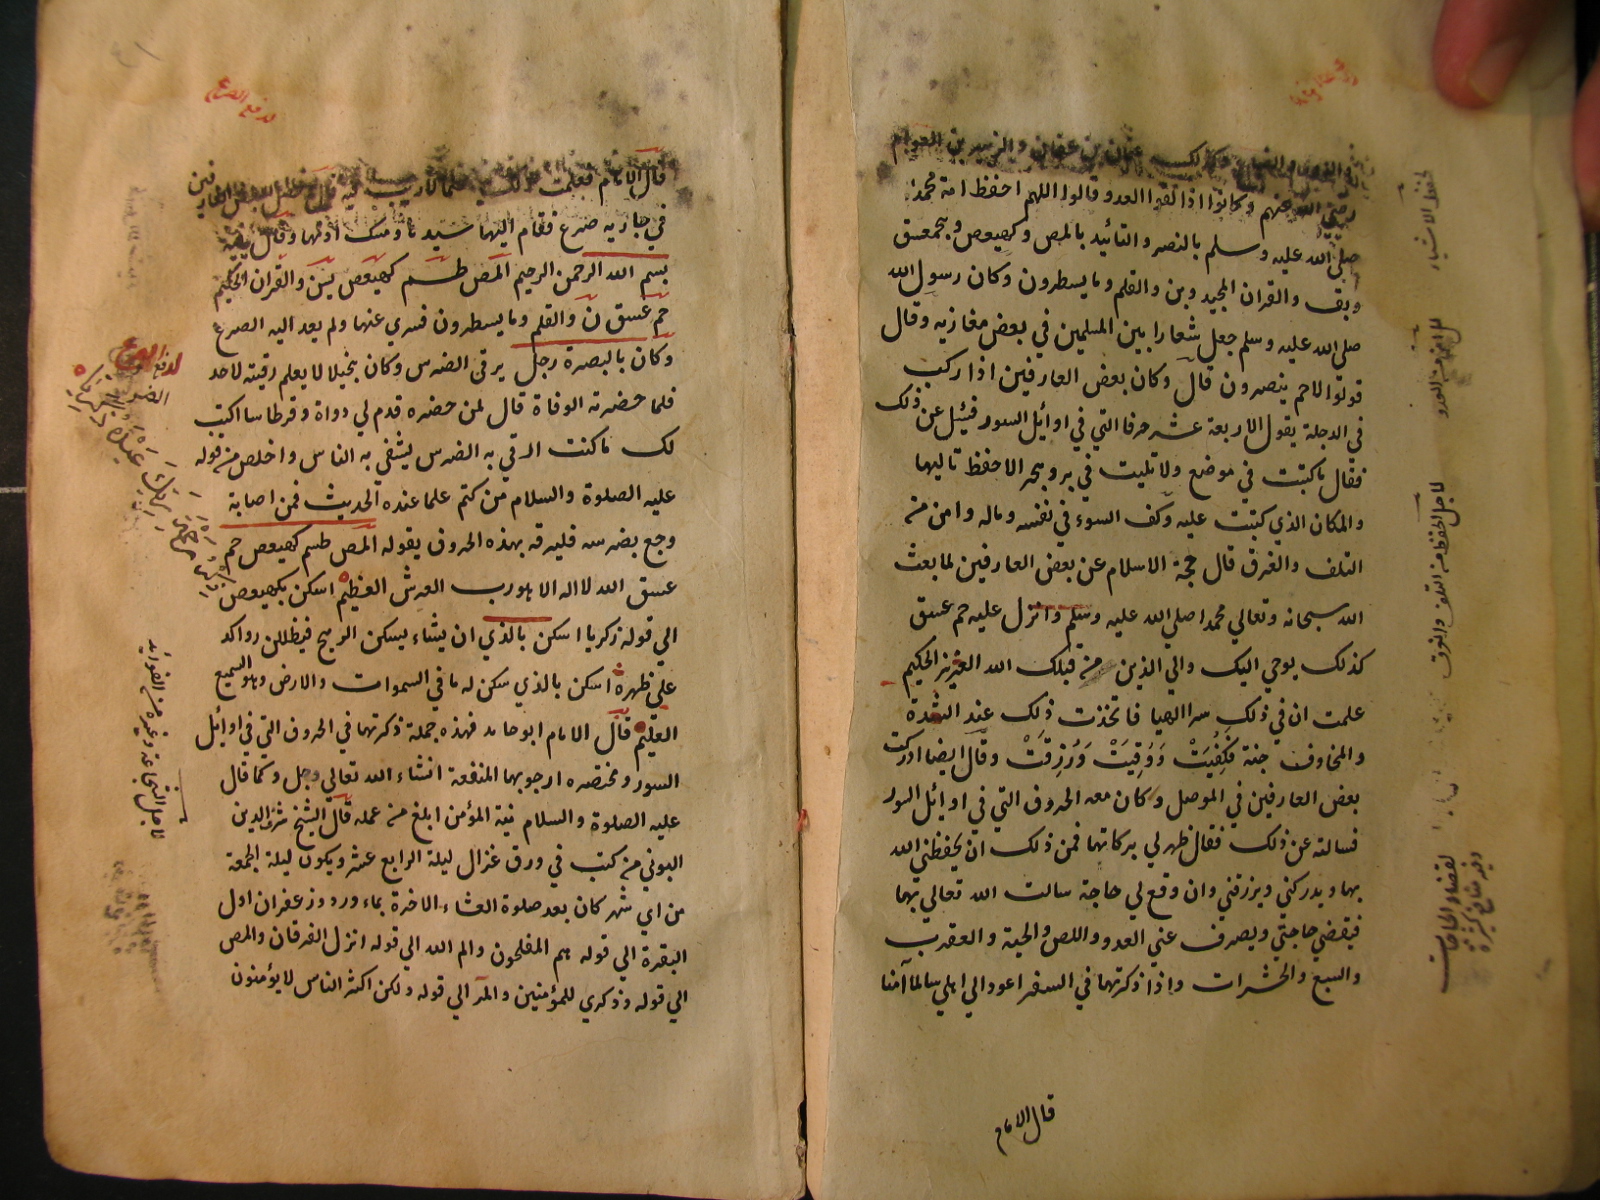 وكذلك عثمان بن عفان والزبير بن العوام
رضي الله عنهم وكانوا اذا لقوا العدو قالوا اللهم احفظ امة محمد
صلى الله عليه وسلم بالنصر والتائيد بالمص وكهيعص وبحمعسق
وبق والقران المجيد وبن والقلم وما يسطرون وكان رسول الله
صلى الله عليه وسلم جعل شعارا بين المسلمين في بعض مغازيه وقال
قولوا الا حم ينصرون قال وكان بعض العارفين اذا ركب
في الدجلة يقول الاربعة عشر حرفا التي في اوآئل السور فسئل عن ذلك
فقال ما كتبت في موضع ولا تليت في بر وبحر الا حفظ تاليها
والمكان الذي كتبت عليه وكف السوء في نفسه وماله وامن من
التلف والغرق قال حجة الاسلام عن بعض العارفين لما بعث
الله سبحانه وتعالي محمدا صلي الله عليه وسلم وانزل عليه حم عسق
كذلك يوحي اليك والي الذين من قبلك الله العزيز الحكيم
علمت ان في ذلك سرا الهيا فاتخذت ذلك عند الشدة
والمخاوف جنة فَكُفِيَتْ وَوُقِيَتْ وَرُزِقَتْ وقال ايضا ادركت
بعض العارفين في الموصل وكان معه الحروف التي في اوائل السور
فسالته عن ذلك فقال ظهر لي بركاتها فمن ذلك ان يحفظني الله
بها ويدركني ويرزقني وان وقع لي حاجة سالت الله تعالي بها
فيقضي حاجتي ويصرف عني العدو واللص والحية والعقرب
والسبع والحشرات واذا ذكرتها في السفر اعود الي اهلي سالما آمنا
قال الامام
لحفظ الاشياء
لاجل الحفظ من التلف والغرق
لقضاء الحاجات
وفيه منافع كثيرة
لدفع الصرع
قال الامام فعلمت
في جارية صرع فقام اليها سيدنا ومسك اذنها وقال فيه
بسم الله الرحمن الرحيم المص طسم كهيعص يس والقران الحكيم
حم عسق ن والقلم وما يسطرون فسري عنها ولم يعد اليه الصرع
وكان بالبصرة رجل يرقي الضرس وكان بخيلا لا يعلم رقيته لاحد
فلما حضرته الوفاة قال لمن حضره قدم لي دواة وقرطاسا اكتب
لك ما كنت ارقي به الضرس يشفي به الناس واخلص من قوله
عليه الصلوة والسلام من كتم علما عنده الحديث فمن اصابة
وجع بضرسه فليرقه بهذه الحروف يقوله المص طسم كهيعص حم
عسق الله لا اله الا هو رب العرش العظيم اسكن بكهيعص
الي قوله زكريا اسكن بالذي ان يشاء يسكن الريح فيظللن رواكد
علي ظهره اسكن بالذي سكن له ما في السموات والارض وهو السميع
العليم قال الامام ابو حامد فهذه جملة ذكرتها في الحروف التي في اوائل
السور ومختصره ارجو بها المنفعة انشاء الله تعالي وجل وكما قال
عليه الصلوة والسلام نية المؤمن ابلغ من عمله قال الشيخ شرف الدين
البوني من كتب في ورق غزال ليلة الرابع عشر ويكون ليلة الجمعة
من اي شهر كان بعد صلوة العشاء الاخرة بماء ورد وزعفران اول
البقرة الي قوله هم المفلحون والم الله الي قوله انزل الفرقان والمص
الي قوله وذكري للمؤمنين والمر الي قوله ولكن اكثر الناس لا يؤمنون
لدفع
الضرس